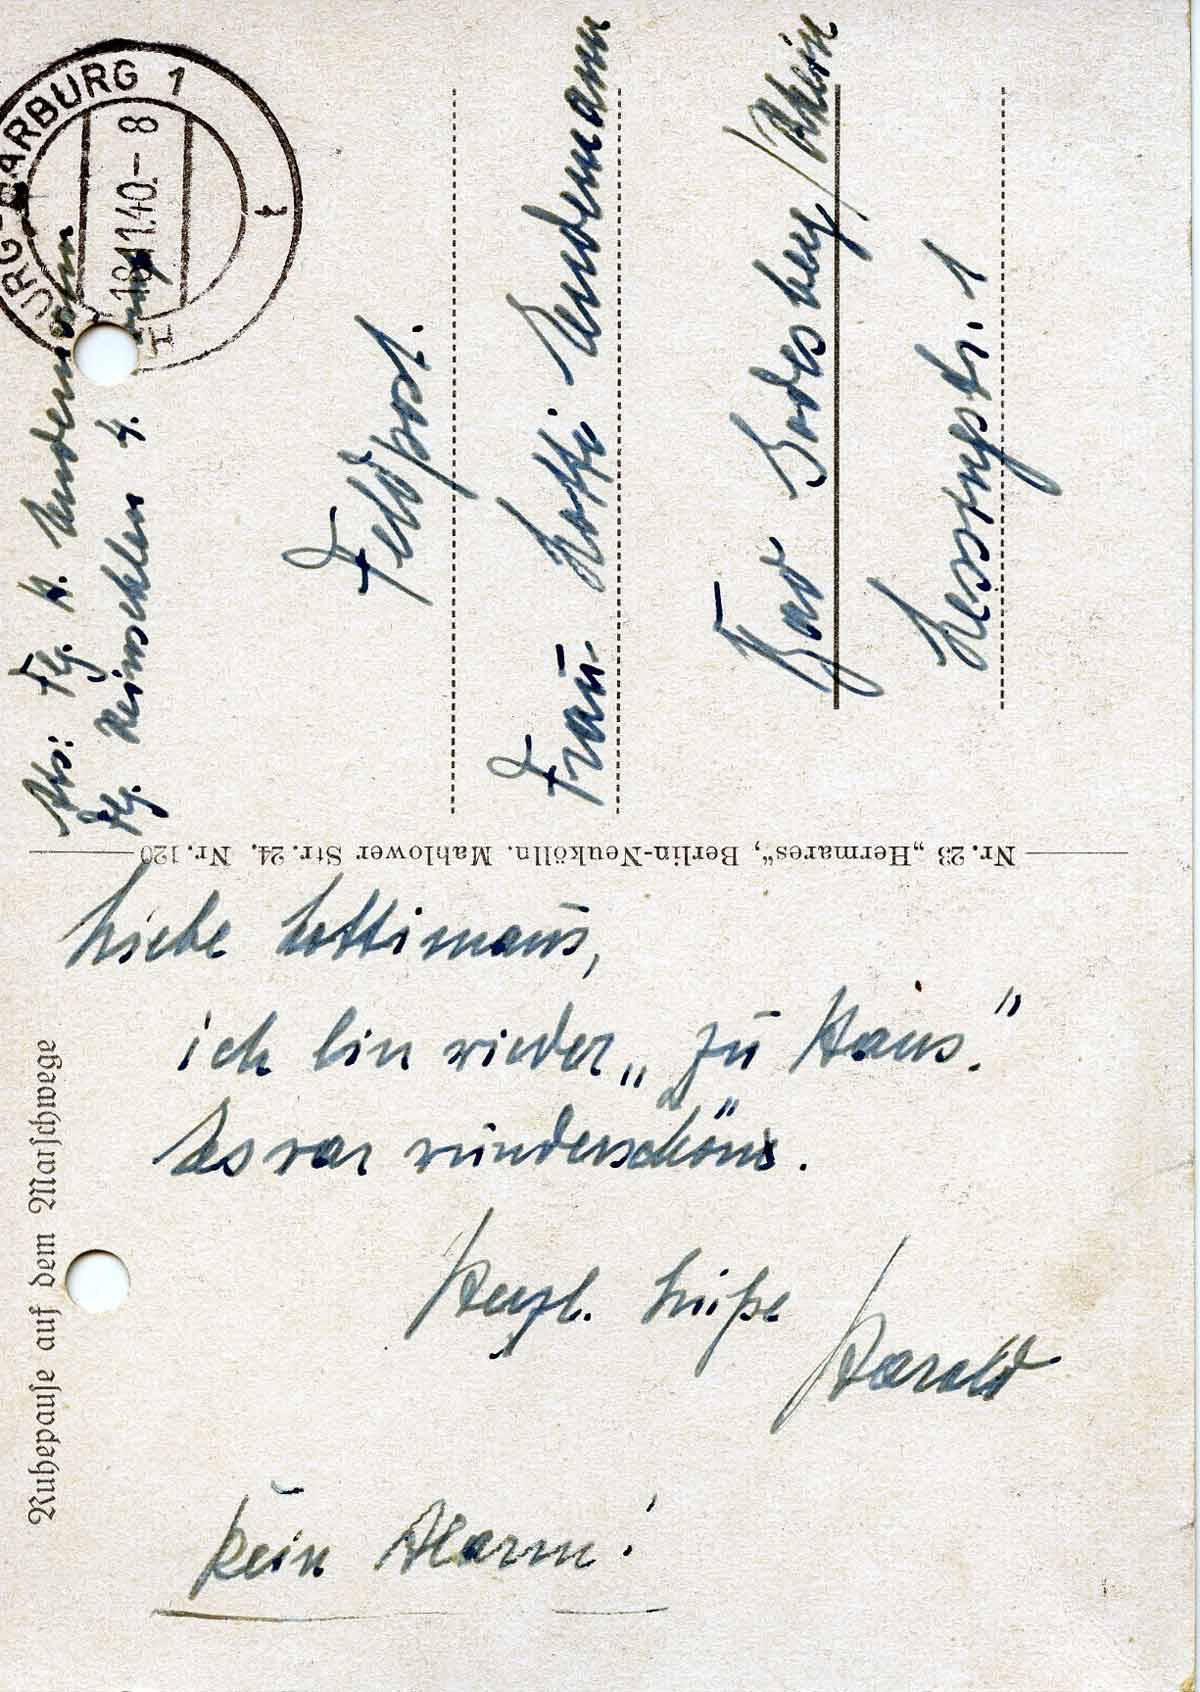 HARBURG 1
18.11.40.-8
Abs: Flg. H.
Flg.
Feldpost.
Frau Lotti Lundemann
Bad Godesberg/Rhein
Lessingstr. 1
Nr. 23 „Hermares“, Berlin-Neukölln. Mahlower Str. 24. Nr. 120
Liebe Lottimaus,
ich bin wieder „zu Haus.“
Es war wunderschön.
Herzl. Grüße
Harald
Kein Alarm!
Ruhepause auf dem Marschwege